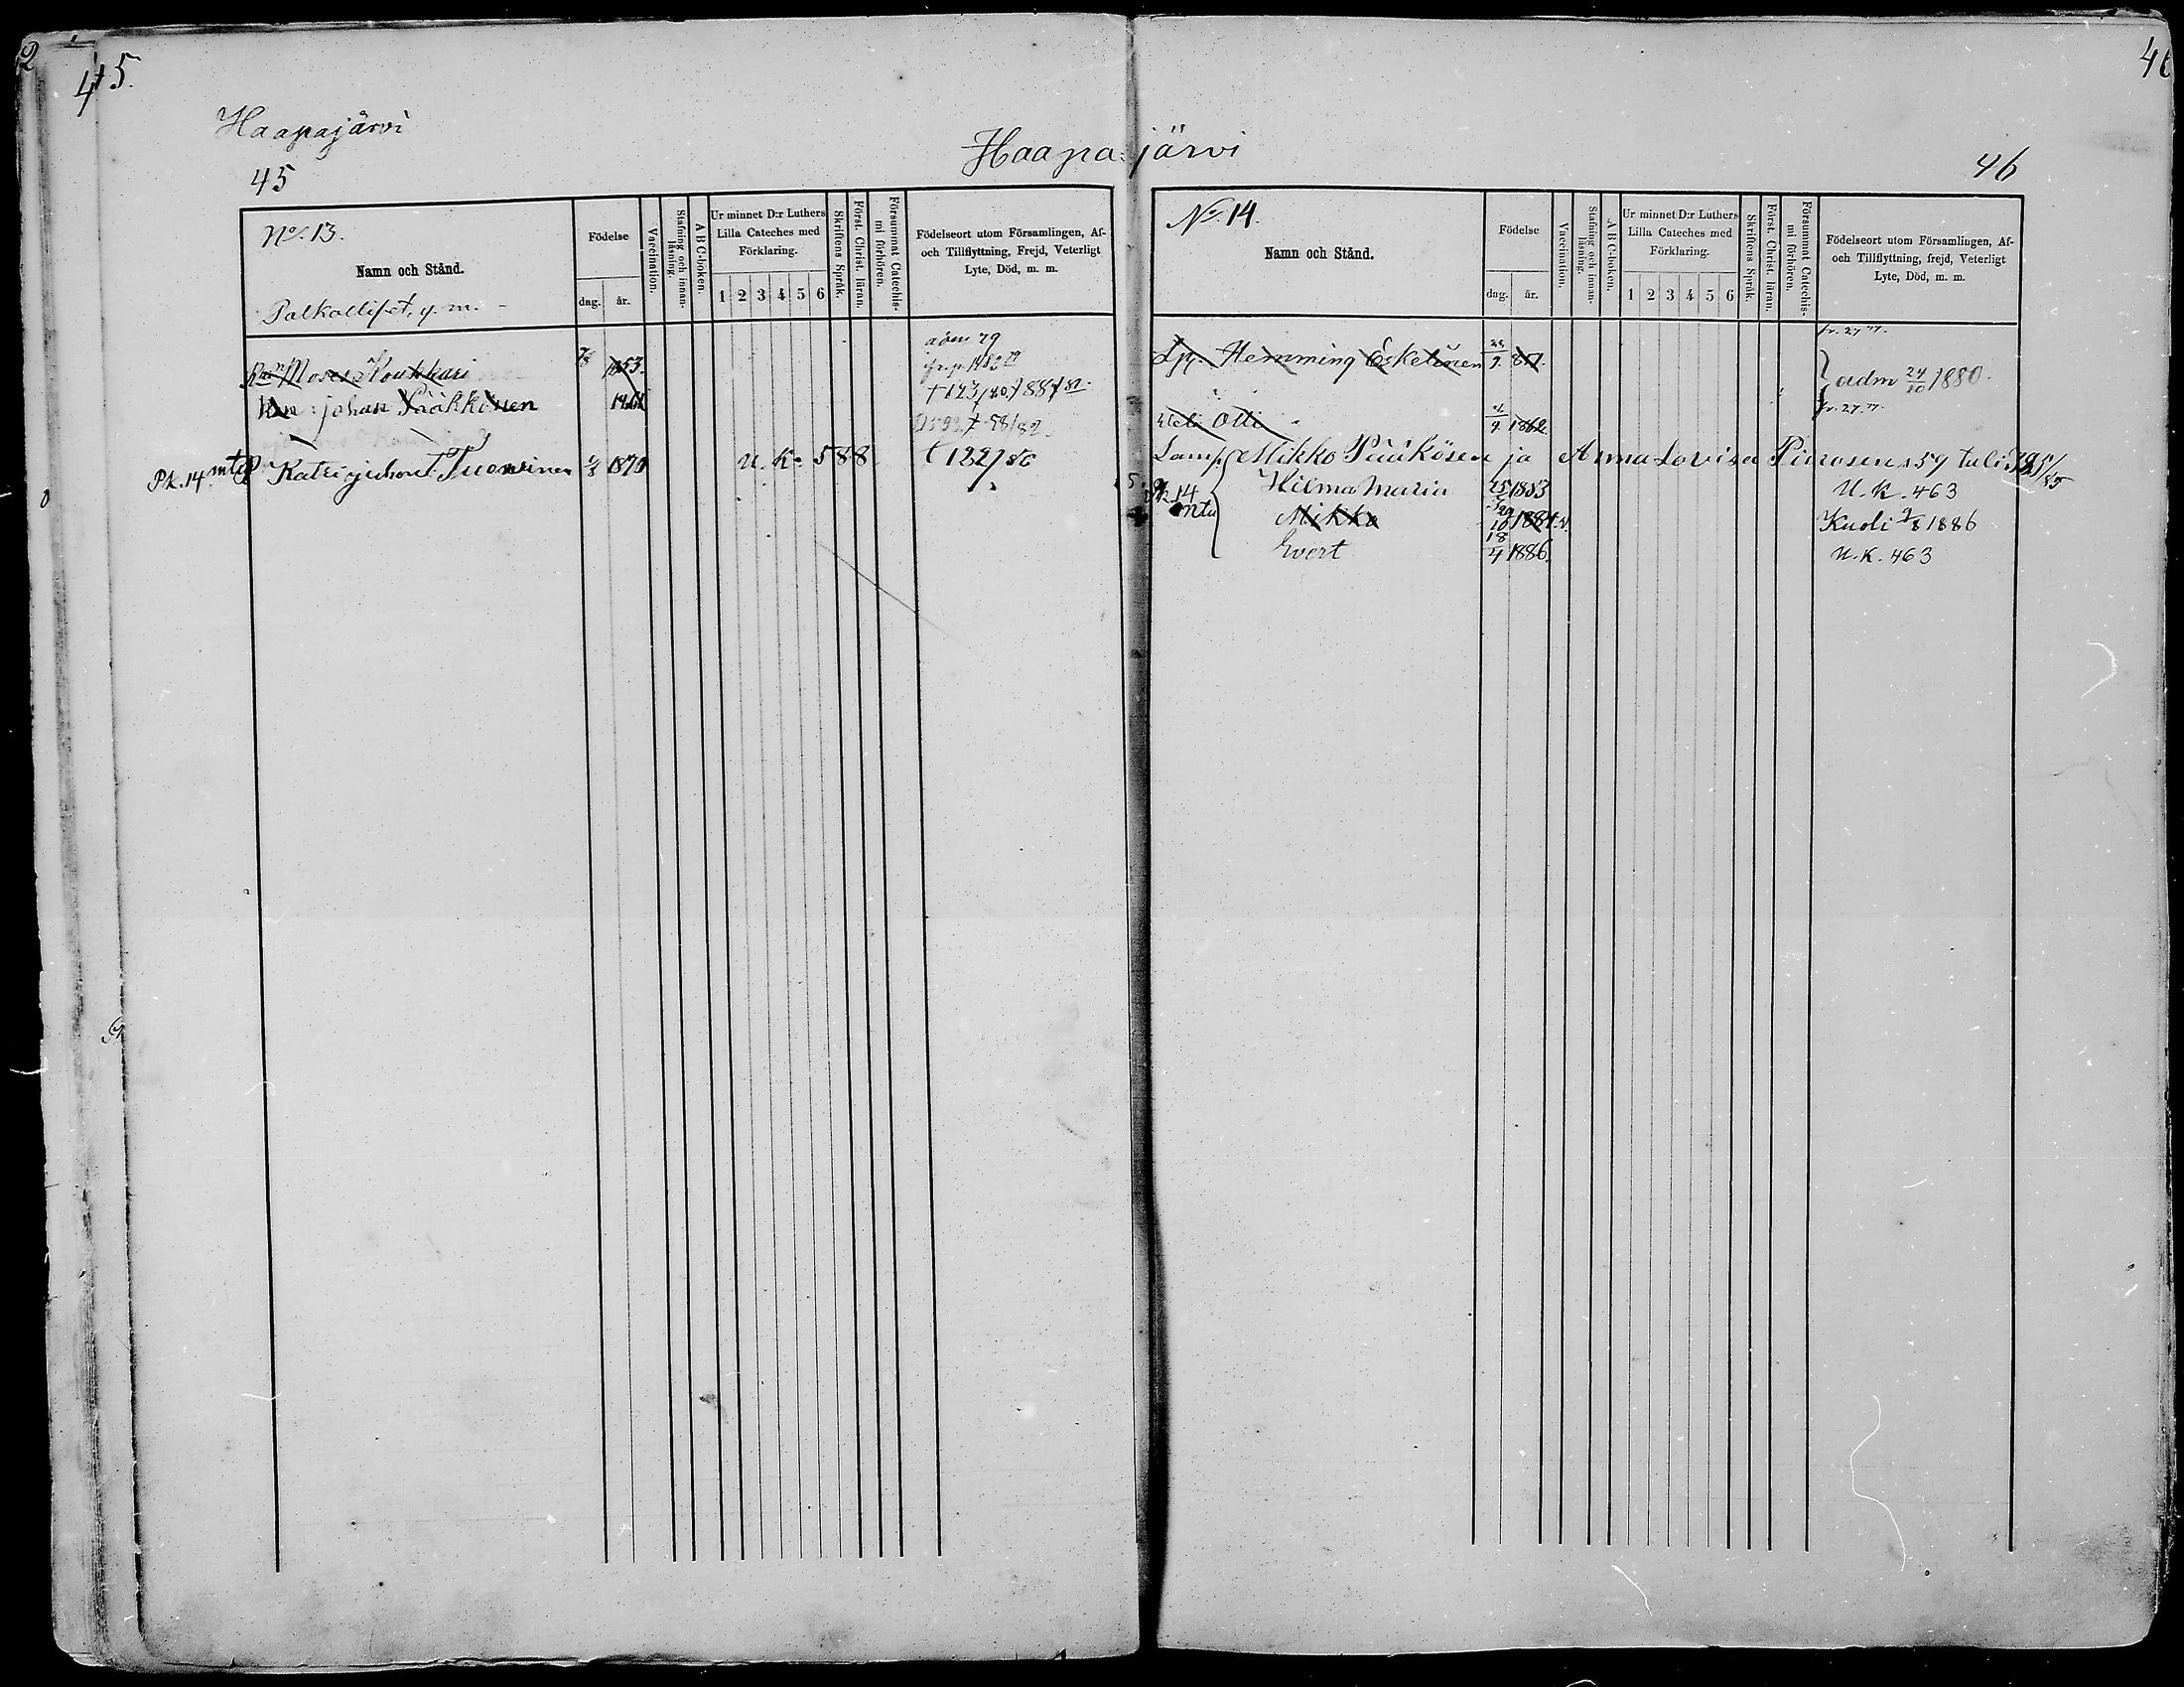 45.
Haapajärvi
Haapa-järvi
45
No. 13.
Namn och Stånd.
Palkolliset, y. m.
Födelse
dag. år.
Vaccination.
Stafning och innan-läsning.
A B C-boken.
Ur minnet D:r Luthers Lilla Cateches med Förklaring.
1 2 3 4 5 6
Skriftens Språk.
Först. Christ. läran.
Försummat Catechis-mi förhören.
Födelseort utom Församlingen, Af- och Tillflyttning, Frejd, Veterligt Lyte, Död, m. m.
adm 79
Moses Koukkari 7/8 1853.
Johan Pääkkönen
Pk. 14 mtu Katri Juhont. Tuovinen 1870 U. K. 588 t 122/86
46
No. 14.
Namn och Stånd.
Födelse
dag. år.
Vaccination.
Stafning och innan-läsning.
A B C-boken.
Ur minnet D:r Luthers Lilla Cateches med Förklaring.
1 2 3 4 5 6
Skriftens Språk.
Först. Christ. läran.
Försummat Catechis-mi förhören.
Födelseort utom Församlingen, Af- och Tillflyttning, frejd, Veterligt Lyte, Död, m. m.
Hemming Eskelinen
adm 24/10 1880.
Otti 1862
Lamp. Mikko Pääkösen ja Anna Lovisa s 59 tuli
Pk 14 mtu
Hilma Maria 1883 U. K. 463
Mikko 1884 Kuoli 9/8 1886
Evert 18/4 1886. U. K. 463